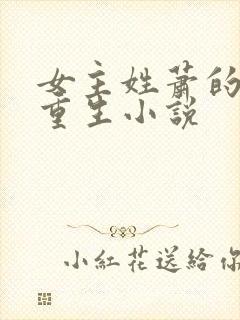 女主姓萧的
重生小說
小紅花送給你